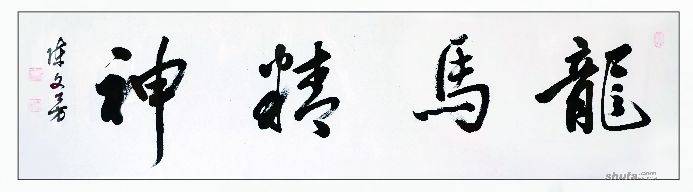 龍馬精神
shufa.com